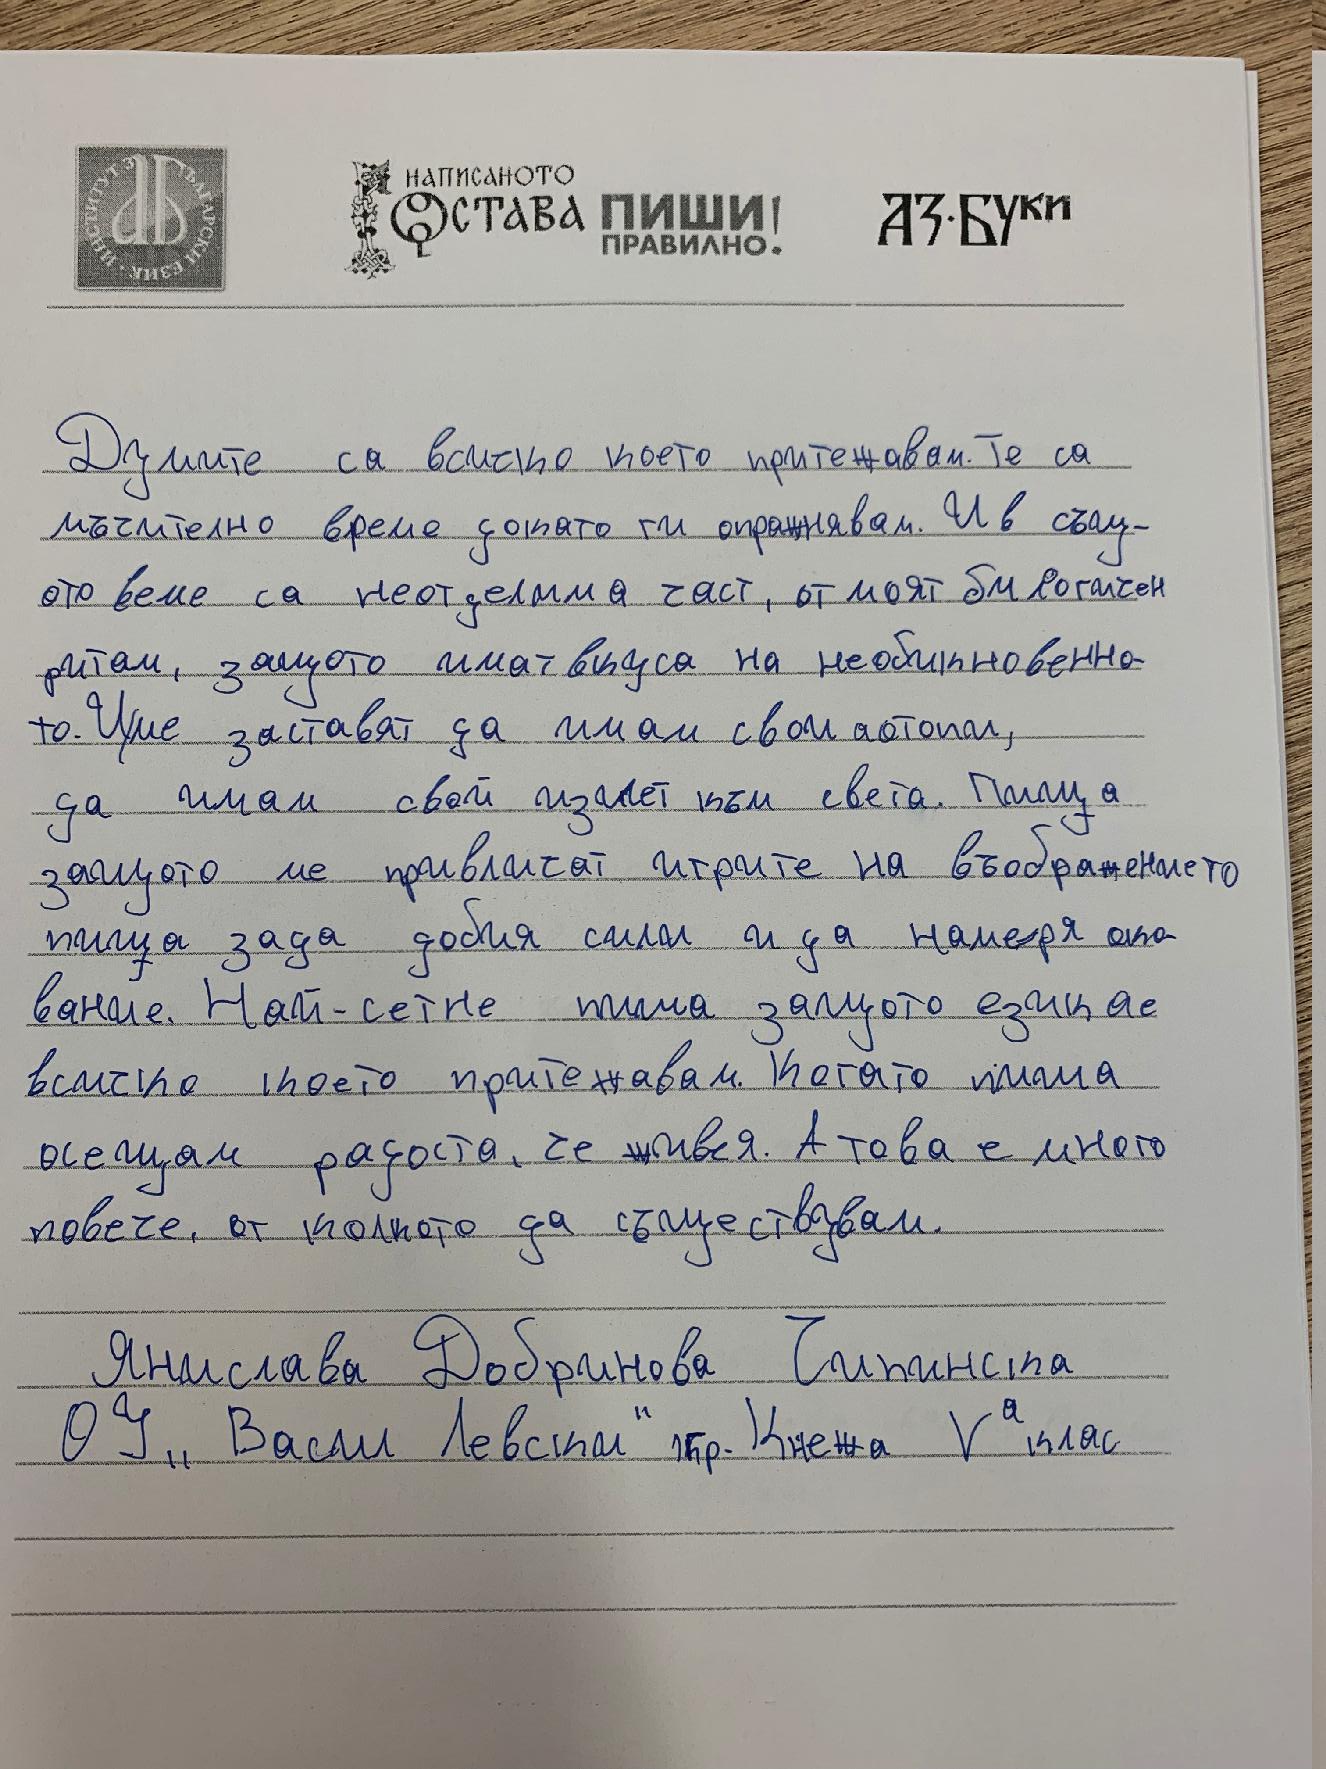 ИНСТИТУТ ЗА БЪЛГАРСКИ ЕЗИК
НАПИСАНОТО
ОСТАВА ПИШИ!
ПРАВИЛНО!
АЗ·БУКИ
Думите са всичко което притежавам. Те са
мъчително време докато ги опражнявам. И в същ-
ото веме са неотделима част, от моят биологичен
ритам, защото имат вкуса на необикновенно-
то. Ще заставят да имам свои
да имам свой излет към света. Пища
защото ме привличат игрите на въображението
пища зада добия сили и да намеря око-
вание. Най-сетне пиша защото езикае
всичко което притежавам. Когато пиша
осещам радоста, че живея. А това е много
повече, от колкото да съществувам.
Янислава Добринова Чипинска
ОУ „Васил Левски" гр. Кнежа Vа клас